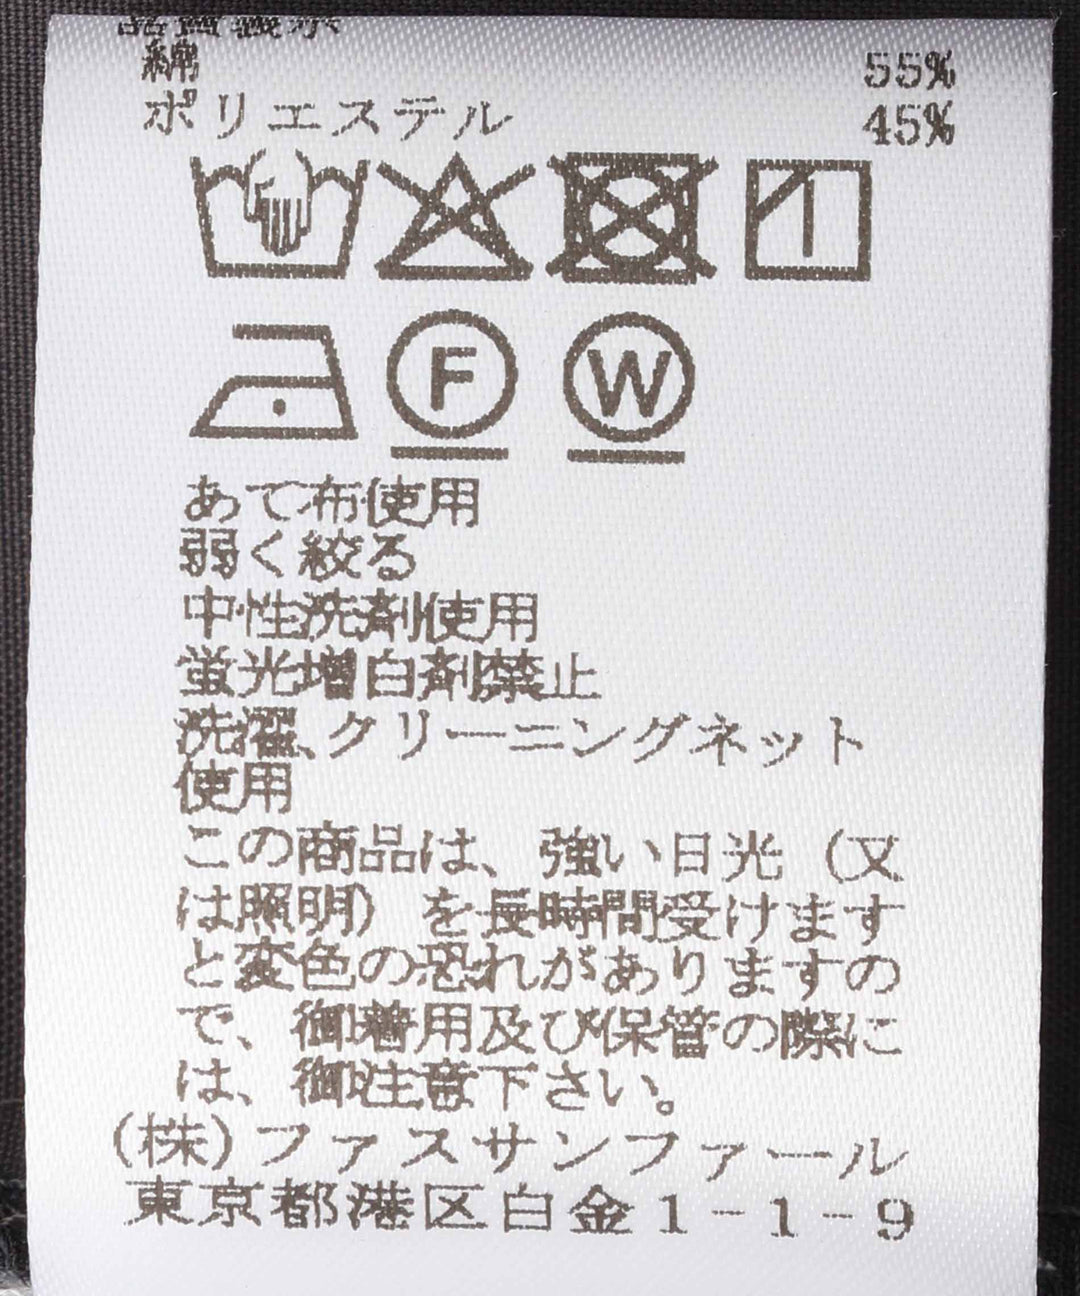 品質表示
綿 55%
ポリエステル 45%
F W
あて布使用
弱く絞る
中性洗剤使用
蛍光増白剤禁止
洗濯、クリーニングネット
使用
この商品は、強い日光（又
は照明）を長時間受けます
と変色の恐れがありますの
で、御着用及び保管の際に
は、御注意下さい。
(株)ファスサンファール
東京都港区白金1-1-9